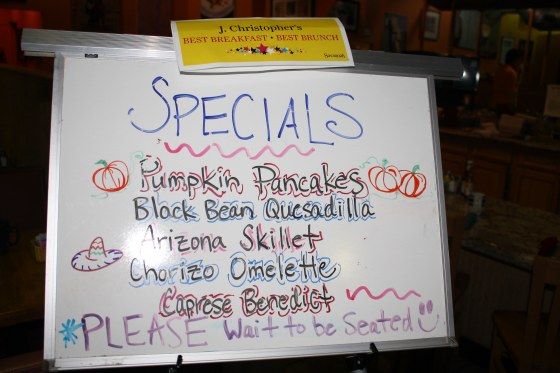 J. Christopher's
BEST BREAKFAST • BEST BRUNCH
Savannah
SPECIALS
Pumpkin Pancakes
Black Bean Quesadilla
Arizona Skillet
Chorizo Omelette
Caprese Benedict
*PLEASE Wait to be Seated